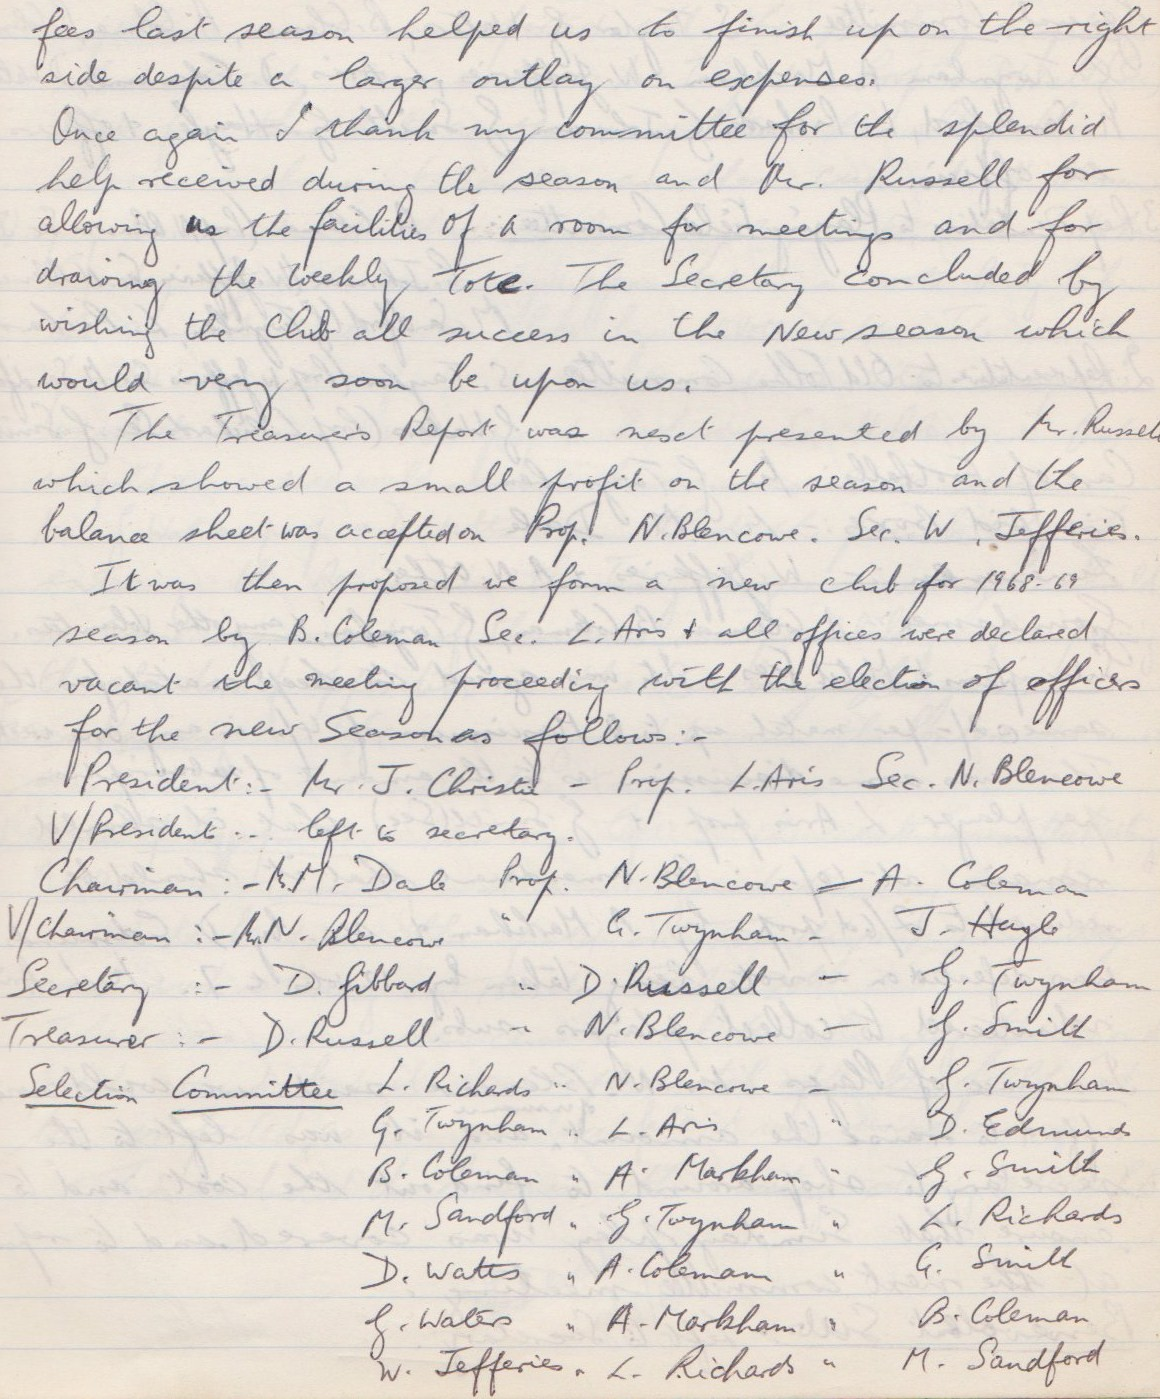 fees last season helped us to finish up on the right
side despite a larger outlay on expenses.
Once again I thank my committee for the splendid
help received during the season and Mr. Russell for
allowing us the facilities of a room for meetings and for
drawing the weekly Tote. The Secretary concluded by
wishing the Club all success in the New season which
would very soon be upon us.
The Treasurer's Report was next presented by Mr. Russell
which showed a small profit on the season and the
balance sheet was accepted on Prop. N. Blencowe. Sec. W. Jefferies.
It was then proposed we form a new club for 1968-69
season by B. Coleman Sec. L. Aris & all offices were declared
vacant the meeting proceeding with the election of officers
for the new Season as follows:-
President:- Mr. J. Christie - Prop. L. Aris Sec. N. Blencowe
V/President :- left to secretary.
Chairman :- Mr. M. Dale Prop. N. Blencowe - A. Coleman
V/Chairman :- Mr. N. Blencowe " G. Twynham - J. Hayle
Secretary :- D. Gibbard " D. Russell - G. Twynham
Treasurer :- D. Russell " N. Blencowe - G. Smith
Selection Committee L. Richards " N. Blencowe - G. Twynham
G. Twynham " L. Aris " D. Edmunds
B. Coleman " A. Markham " G. Smith
M. Sandford " G. Twynham " L. Richards
D. Watts " A. Coleman " G. Smith
G. Waters " A. Markham " B. Coleman
W. Jefferies " L. Richards " M. Sandford